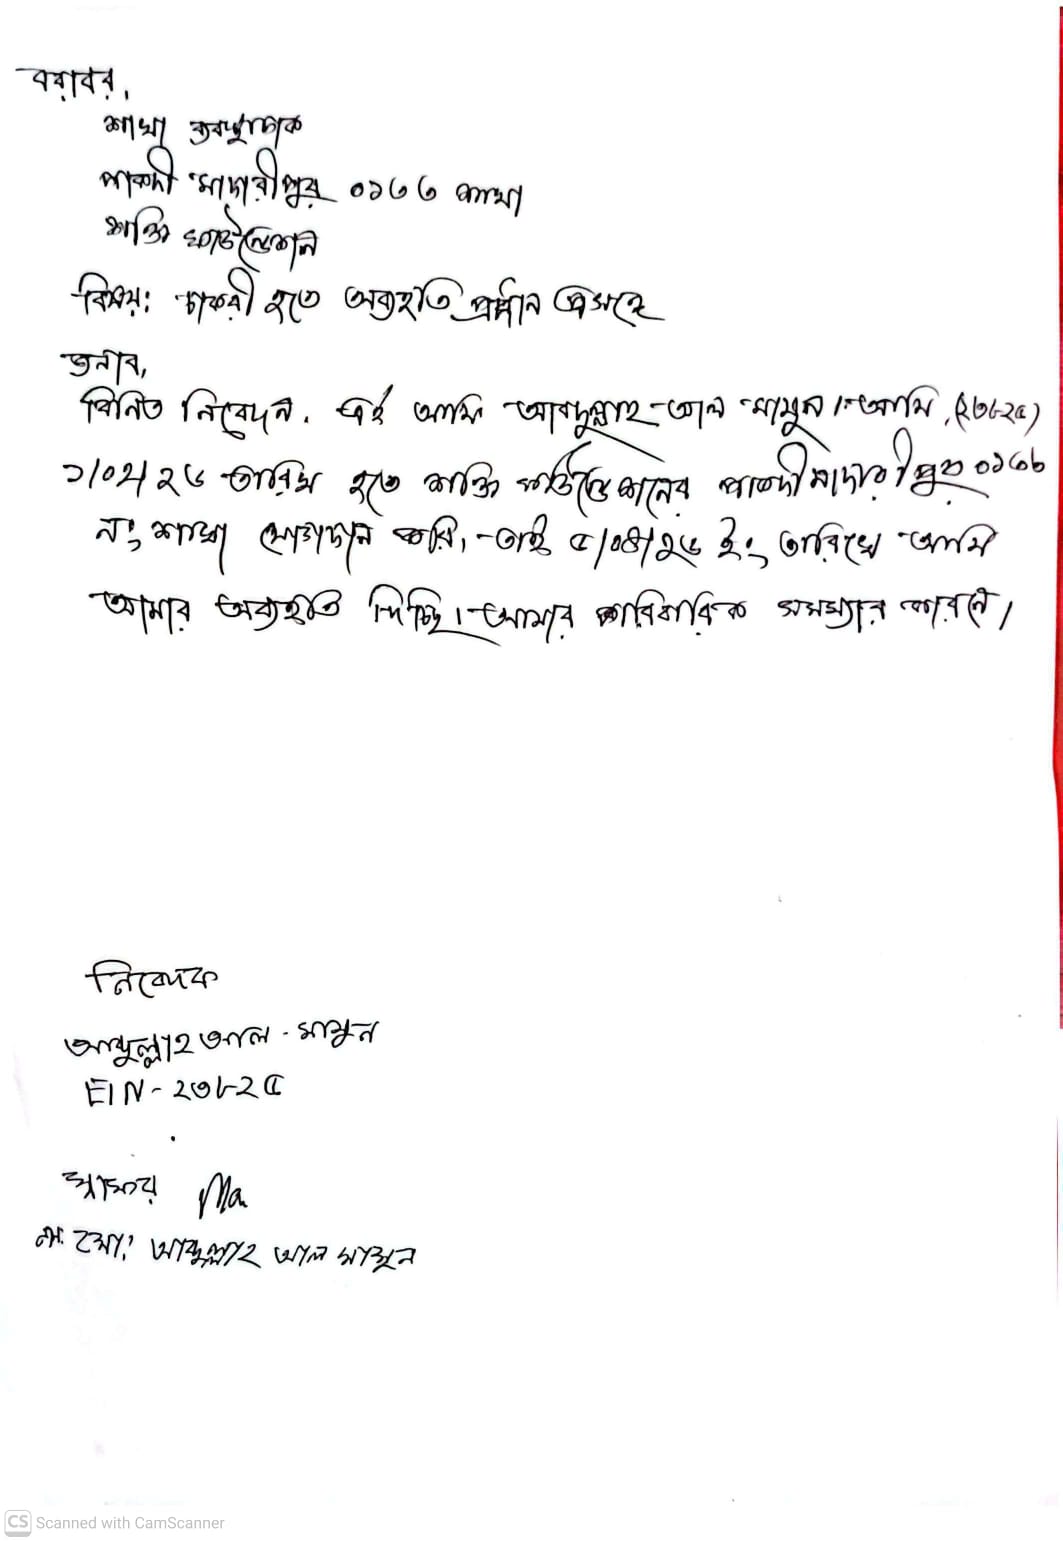 বরাবর,
শাখা ব্যবস্থাপক
পাকদী মাদারীপুর ০১৩৩ শাখা
শক্তি ফাউন্ডেশন
বিষয়: চাকরী হতে অব্যহতি প্রসঙ্গে
জনাব,
বিনিত নিবেদন. এই আমি আবদুল্লাহ-আল মামুন। আমি, (২৩৮২৫)
১/০২/২৬ তারিখ হতে শক্তি ফাউন্ডেশনের পাকদী মাদারীপুর
নং শাখা যোগদান করি, তাই ৫/০৪/২৬ ইং তারিখে আমি
আমার অব্যহতি দিচ্ছি। আমার পারিবারিক সমস্যার কারনে।
নিবেদক
আব্দুল্লাহ আল - মামুন
EIN - ২৩৮২৫
স্বাক্ষর
মো: আব্দুল্লাহ আল মামুন
CS Scanned with CamScanner